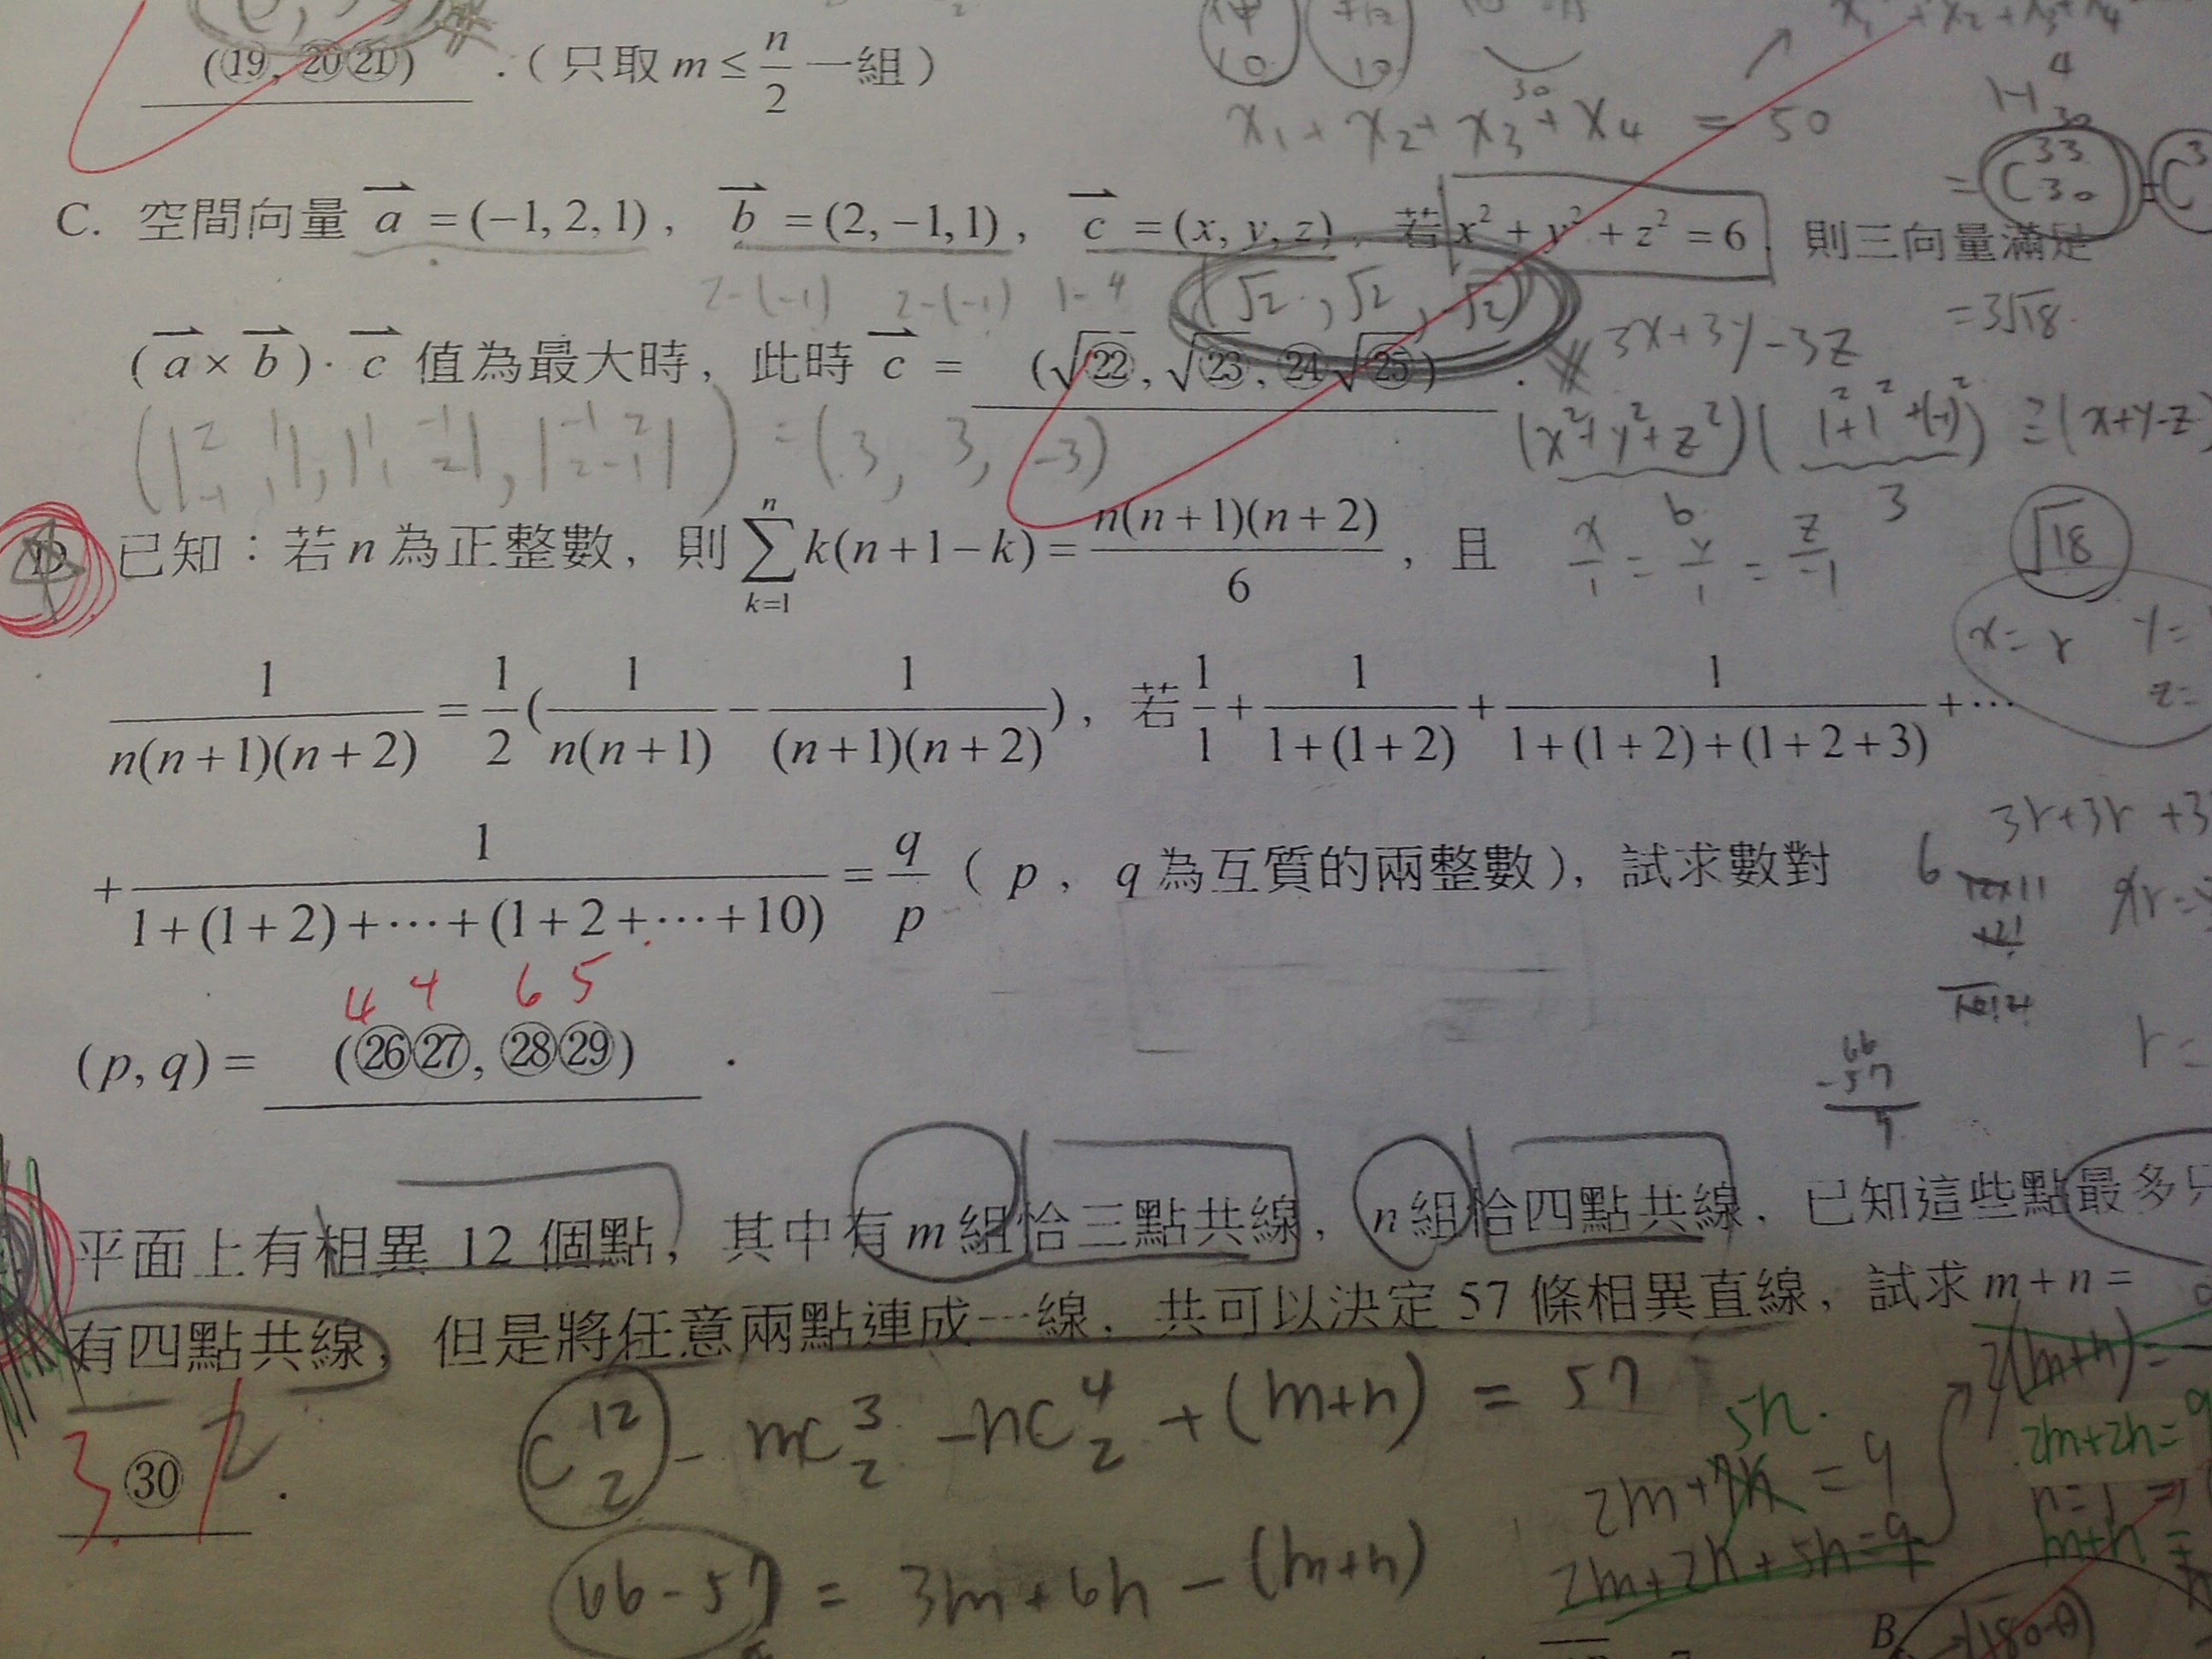 (⑲, ⑳㉑) .（只取 m ≤ n/2 一組）
x₁ + x₂ + x₃ + x₄ = 50
30
H⁴₃₀
= C³³₃₀ = C³
C. 空間向量 a = (−1, 2, 1)， b = (2, −1, 1)， c = (x, y, z)，若 x² + y² + z² = 6，則三向量滿足
2-(-1) 2-(-1) 1-4 (√2, √2, -√2)
(a × b)· c 值為最大時，此時 c = (√㉒, √㉓, ㉔√㉕) .
3x+3y-3z = 3√18
(x²+y²+z²)(1²+1²+(-1)²) ≥ (x+y-z)
6 3
= (3, 3, -3)
D. 已知：若 n 為正整數，則 ∑_{k=1}^{n} k(n+1−k) = n(n+1)(n+2)/6，且
x/1 = y/1 = z/-1
√18
x=r y=
z=
1/(n(n+1)(n+2)) = 1/2(1/(n(n+1)) − 1/((n+1)(n+2)))，若 1/1 + 1/(1+(1+2)) + 1/(1+(1+2)+(1+2+3)) + ⋯
3r+3r +3
+ 1/(1+(1+2)+⋯+(1+2+⋯+10)) = q/p（p，q 為互質的兩整數），試求數對
4 4 6 5
(p, q) = (㉖㉗, ㉘㉙) .
r=
66
-57
9
平面上有相異 12 個點，其中有 m 組恰三點共線，n 組恰四點共線，已知這些點最多只
有四點共線，但是將任意兩點連成一線，共可以決定 57 條相異直線，試求 m + n =
3 ㉚ 2 .
C¹²₂ - mC³₂ - nC⁴₂ + (m+n) = 57
66-57 = 3m+6n-(m+n)
5n.
2m+7n = 9
2m+2n+5n=9
7(m+n)=
2m+2n=9
n=1
m+n=
B